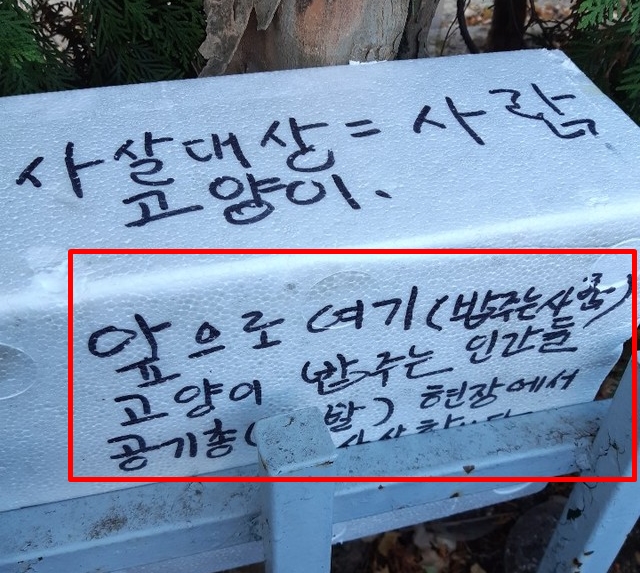 사살대상 = 사람
고양이.
앞으로 여기 (밥주는사람)
고양이 밥주는 인간들
공기총( 발) 현장에서